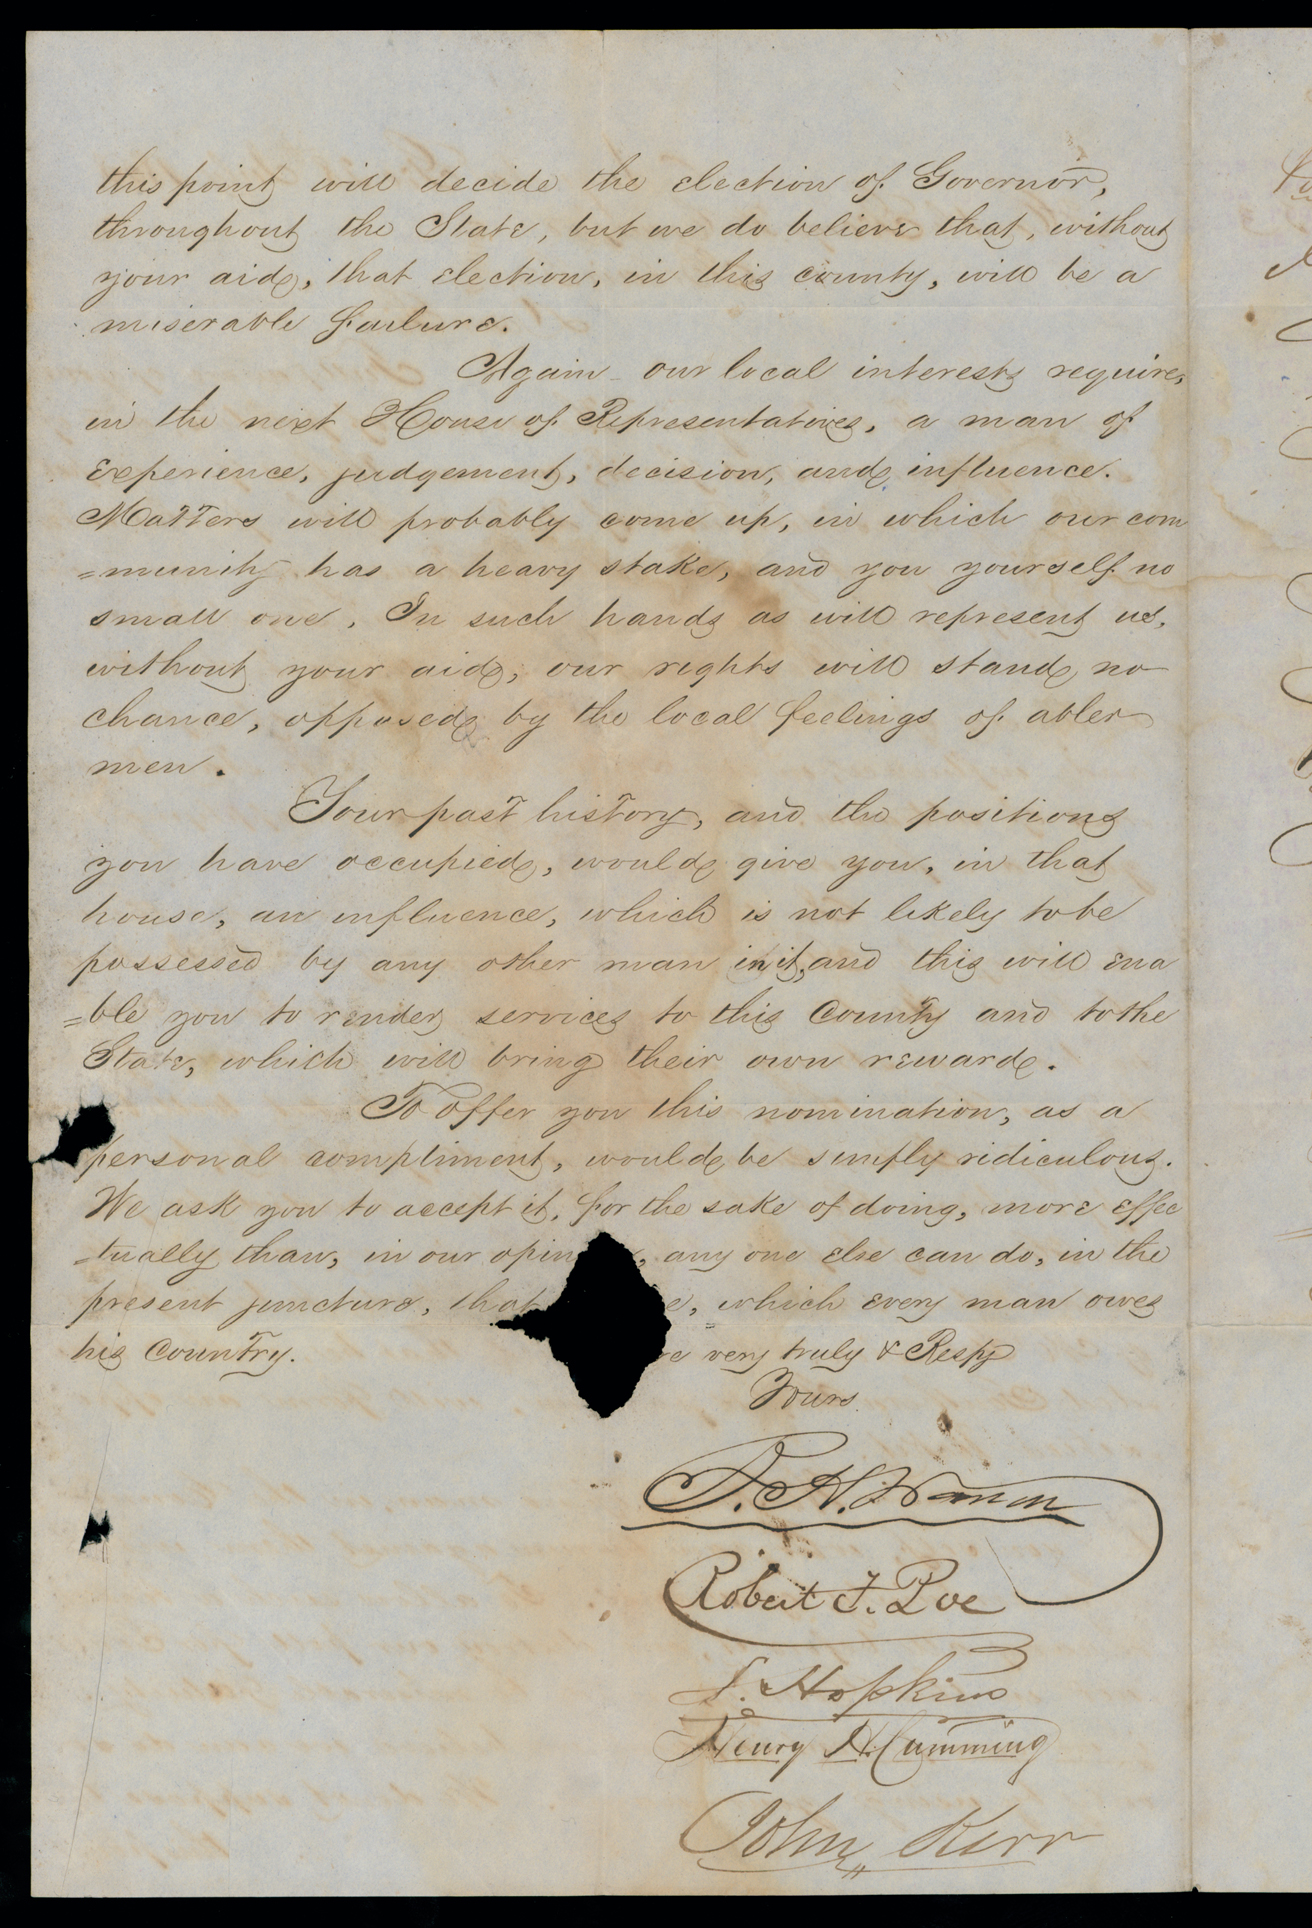 this point will decide the election of Governor,
throughout the State, but we do believe that, without
your aid, that election, in this county, will be a
miserable failure.
Again - our local interests require,
in the next House of Representatives, a man of
experience, judgement, decision, and influence.
Matters will probably come up, in which our com
=munity has a heavy stake, and you yourself no
small one. In such hands as will represent us,
without your aid, our rights will stand no
chance, opposed by the local feelings of abler
men.
Your past history, and the positions
you have occupied, would give you, in that
house, an influence, which is not likely to be
possessed by any other man in it, and this will ena
=ble you to render services to this County and to the
State, which will bring their own reward.
To offer you this nomination, as a
personal compliment, would be simply ridiculous.
We ask you to accept it, for the sake of doing, more effec
=tually than, in our opin , any one else can do, in the
present juncture, that e, which every man owes
his Country. re very truly & Respy
Yours
Robert F. Poe
L. Hopkins
Henry H. Cumming
John Kerr